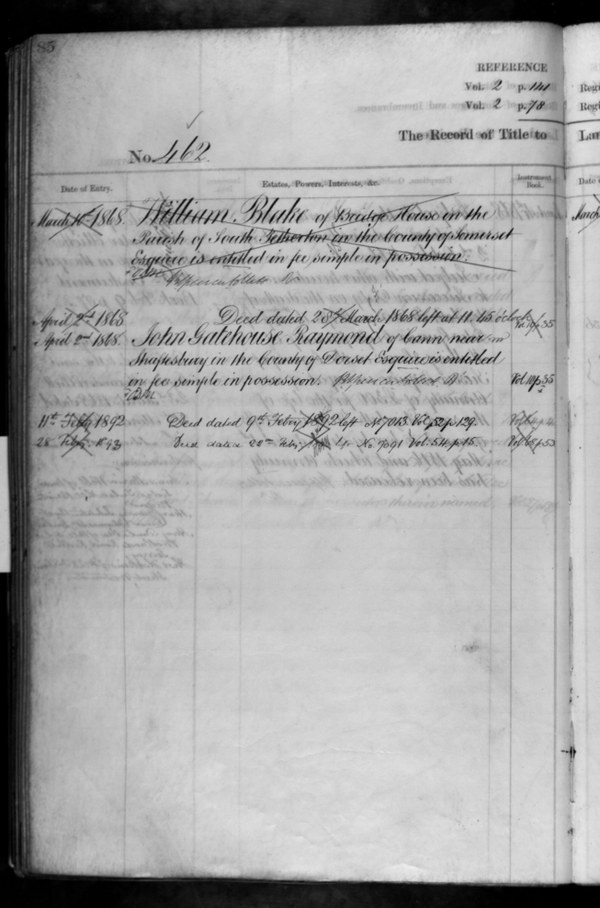 85
REFERENCE
Vol. 2 p. 141
Vol. 2 p. 78
The Record of Title to
Regi
Regi
Lan
No. 462.
Date of Entry.
Estates, Powers, Interests, &c.
Instrument Book.
Date o
March 1868
William Blake of Bridge House in the
March
Parish of South Petherton in the County of Somerset
Esquire is entitled in fee simple in possession.
April 2nd 1868
Deed dated 28th March 1868 left at 11.45 o'clock
Vol 10 p. 35
April 2nd 1868.
John Gatehouse Raymond of Cann near
Shaftesbury in the County of Dorset Esquire is entitled
in fee simple in possession.
Vol. 10 p. 35
11th Feby 1892
Deed dated 9th Febry 1892 left No 7013 Vol. 52 p. 129.
Vol.
28 Feby. 1893
Deed dated Feby No. 7891 Vol. 54 p. 15
Vol.